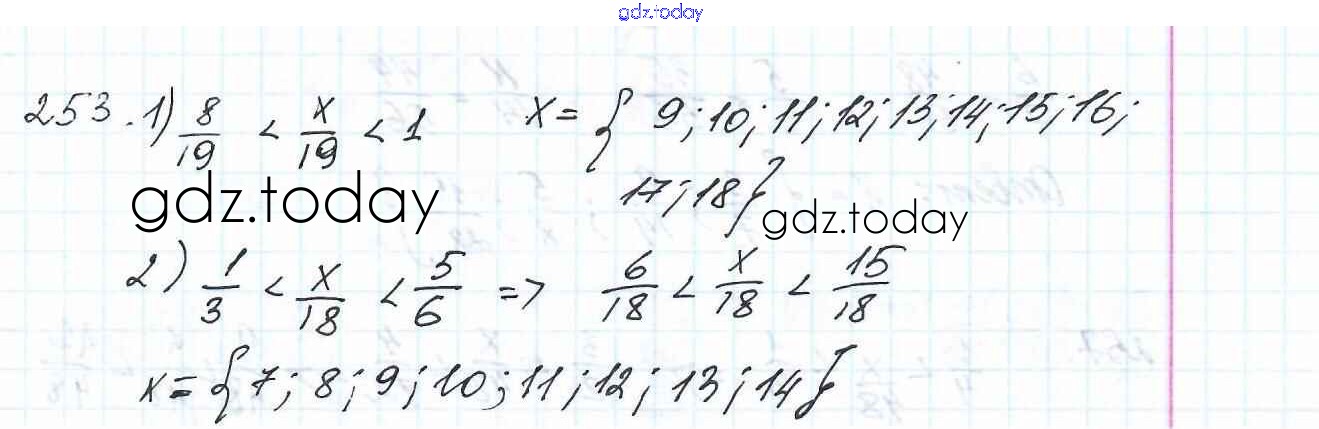 gdz.today
253. 1) 8/19 < x/19 < 1 x = { 9; 10; 11; 12; 13; 14; 15; 16;
17; 18}
gdz.today
gdz.today
2) 1/3 < x/18 < 5/6 => 6/18 < x/18 < 15/18
x = {7; 8; 9; 10; 11; 12; 13; 14}